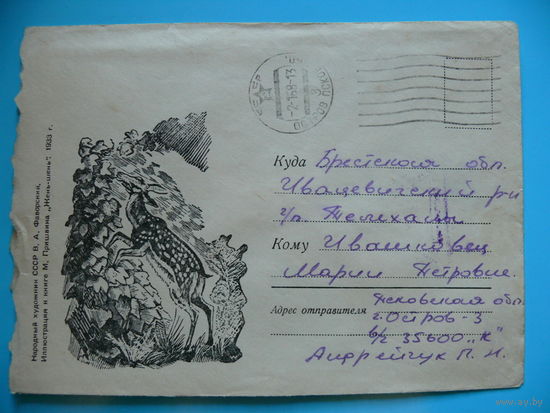 Народный художник СССР В. А. Фаворский.
Иллюстрация к книге М. Пришвина „Жень-шень". 1933 г.
СССР
-2-1 68-13
3
Куда Брестская обл.
Ивацевичский р-н
г/п. Телеханы
Кому Ивашкевец
Марии Петровне.
Адрес отправителя
Псковская обл.
г. Остров-3
в/ч 35600 „К"
Андрейчук П. И.
www.ay.by